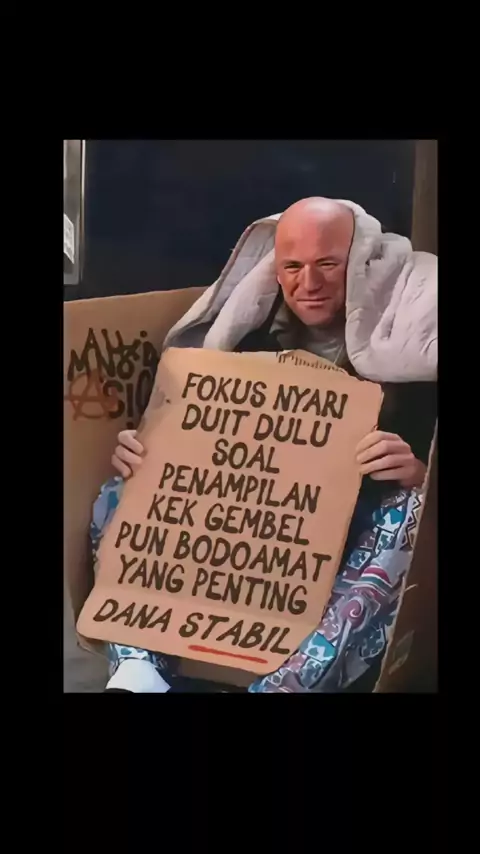 FOKUS NYARI
DUIT DULU
SOAL
PENAMPILAN
KEK GEMBEL
PUN BODOAMAT
YANG PENTING
DANA STABIL